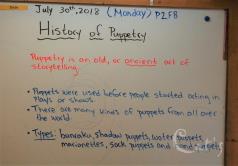 July 30th, 2018 (Monday) P2FB
History of Puppetry
Puppetry is an old, or ancient art of
storytelling.
• Puppets were used before people started acting in
plays or shows.
• There are many kinds of puppets from all over
the world.
• Types: bunraku, shadow puppets, water puppets,
marionettes, sock puppets and hand puppets